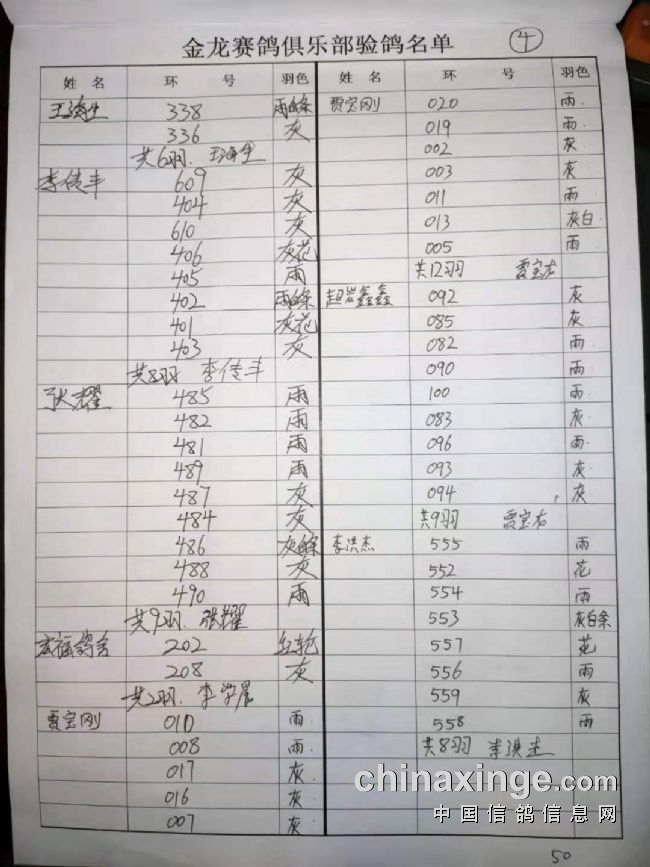 金龙赛鸽俱乐部验鸽名单 ④
姓 名 环 号 羽色 姓 名 环 号 羽色
王海生 338 雨白条 贾宝刚 020 雨
336 灰 019 雨
共6羽. 王海生 002 灰
李传丰 609 灰 003 灰
404 灰 011 雨
610 灰 013 灰白
406 灰花 005 雨
405 雨 共12羽
402 雨白条 赵岩鑫鑫 092 灰
401 灰花 085 灰
403 灰 082 雨
共8羽 李传丰 090 雨
张耀 485 雨 100 雨
482 雨 083 灰
481 雨 096 雨
489 雨 093 灰
487 灰 094 灰
484 灰 共9羽
486 灰白条 李洪杰 555 雨
488 灰 552 花
490 雨 554 雨
共9羽. 张耀 553 灰白条
宏福鸽舍 202 红轮 557 花
208 灰 556 雨
共2羽. 李学晨 559 灰
贾宝刚 010 雨 558 雨
008 雨 共8羽 李洪杰
017 灰
016 灰
007 灰
chinaxinge.com
中国信鸽信息网
50